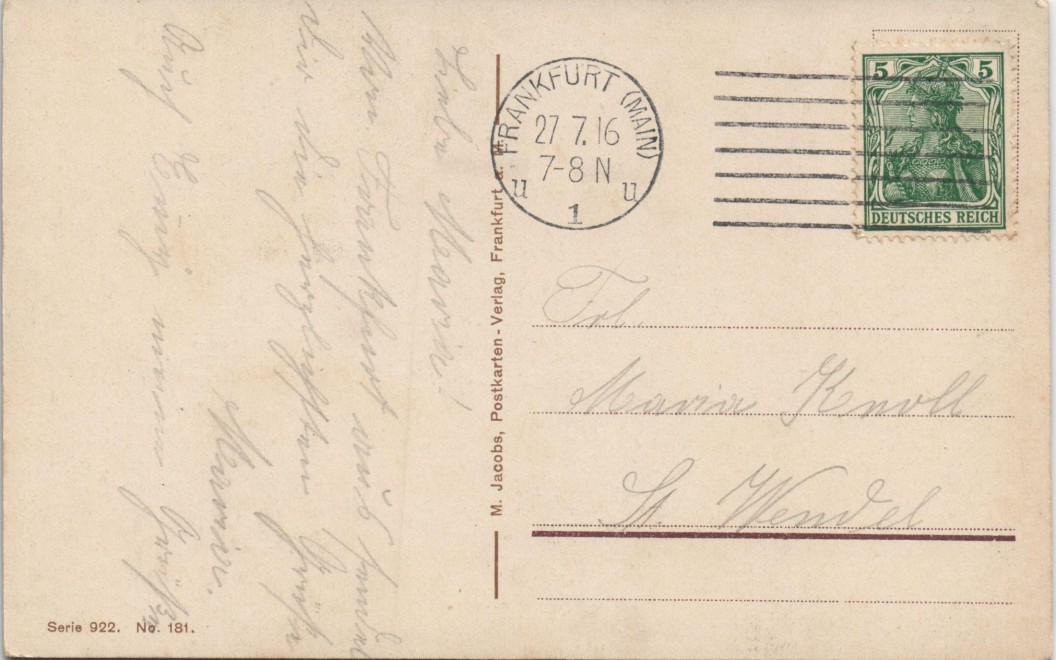 Liebe Maria!
Von Frankfurt aus sendet
dir die herzlichsten Grüße
Maria.
Auch Eurig meine Grüße
M. Jacobs, Postkarten-Verlag, Frankfurt a. M.
FRANKFURT (MAIN)
27 7. 16
7-8 N
u u
1
5 5
DEUTSCHES REICH
Frl.
Maria Knoll
St. Wendel
Serie 922. No. 181.